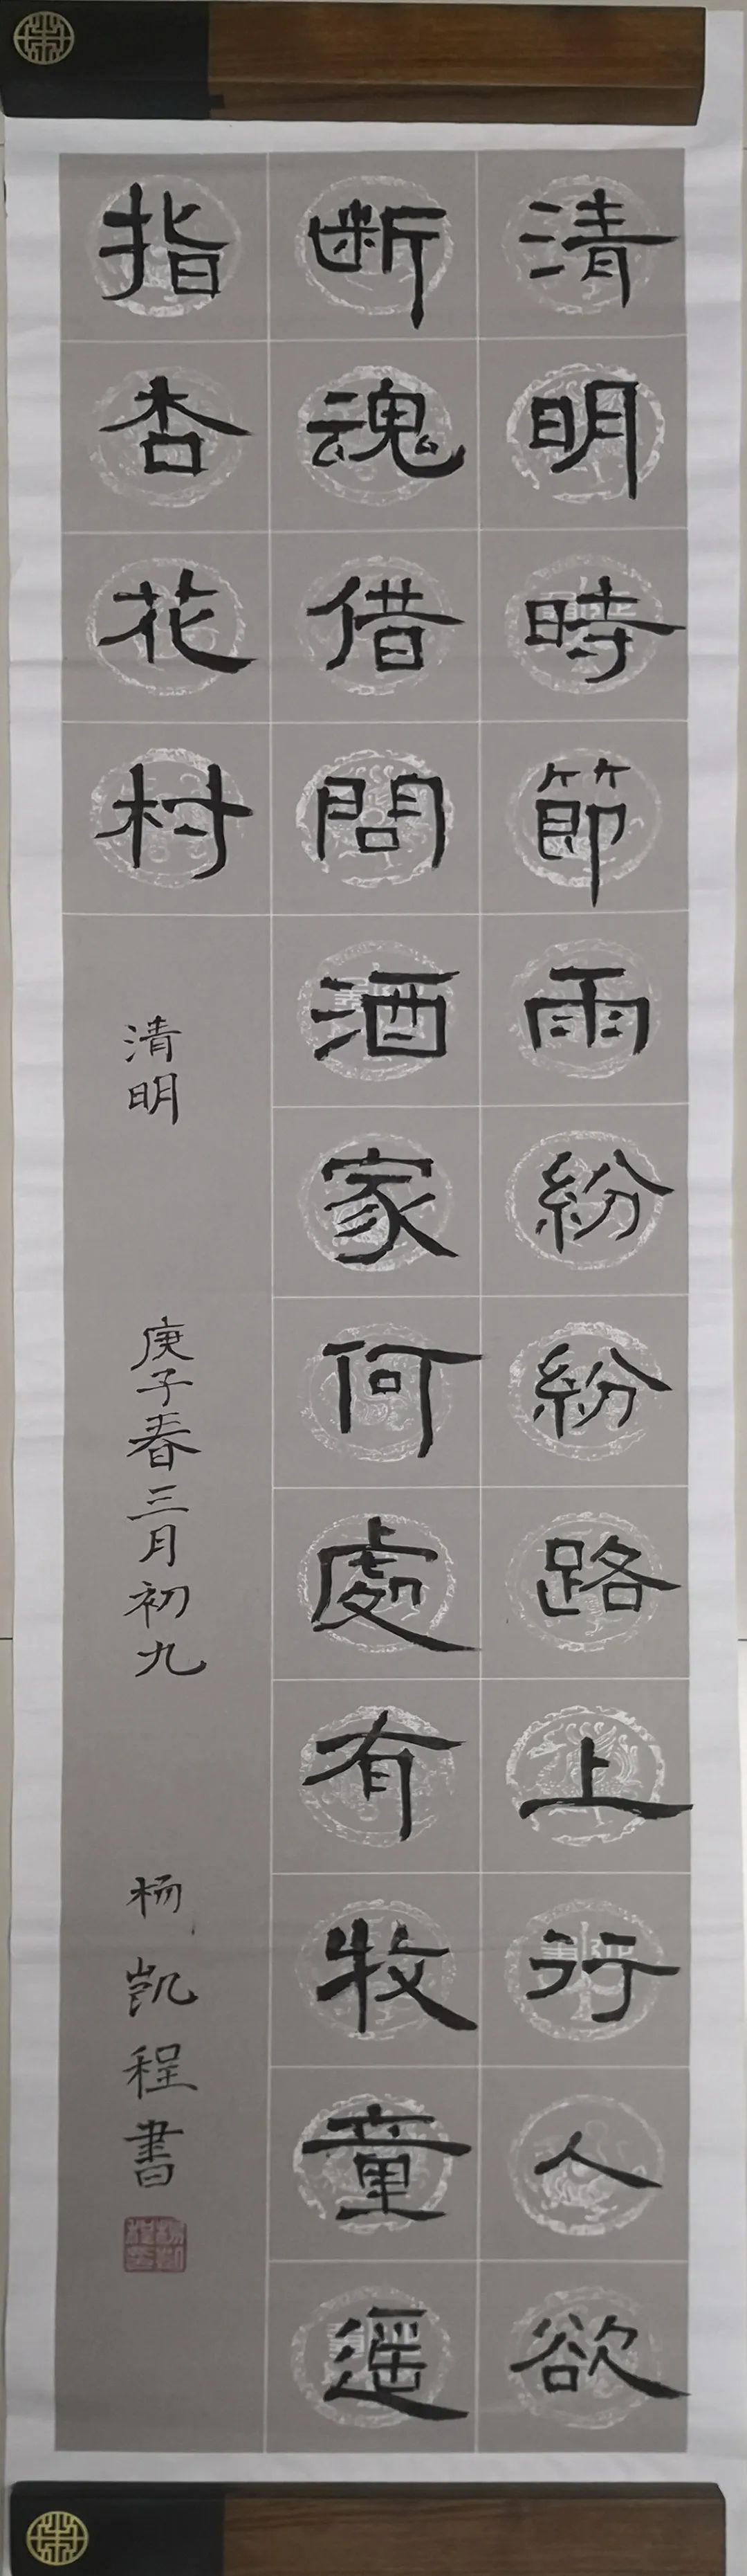 清明時節雨紛紛路上行人欲
断魂借問酒家何處有牧童遥
指杏花村
清明
庚子春三月初九
杨凯程書